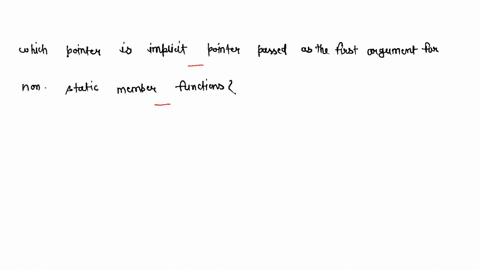 which pointer is implicit pointer passed as the first argument for
non. static member functions?